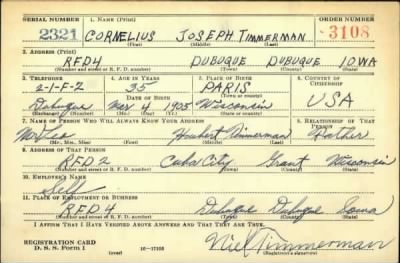 SERIAL NUMBER 1. NAME (Print) ORDER NUMBER
2321 CORNELIUS JOSEPH TIMMERMAN 3108
(First) (Middle) (Last)
2. ADDRESS (Print)
RFD4 DUBUQUE DUBUQUE IOWA
(Number and street or R. F. D. number) (Town) (County) (State)
3. TELEPHONE 4. AGE IN YEARS 5. PLACE OF BIRTH 6. COUNTRY OF CITIZENSHIP
2-1-F-2 35 PARIS
DATE OF BIRTH (Town or county) USA
Dubuque Nov 4 1905 Wisconsin
(Exchange) (Number) (Mo.) (Day) (Yr.) (State or country)
7. NAME OF PERSON WHO WILL ALWAYS KNOW YOUR ADDRESS 8. RELATIONSHIP OF THAT PERSON
Timmerman Father
(Mr., Mrs., Miss) (First) (Middle) (Last)
9. ADDRESS OF THAT PERSON
RFD 2 Cuba City Grant Wisconsin
(Number and street or R. F. D. number) (Town) (County) (State)
10. EMPLOYER'S NAME
Self
11. PLACE OF EMPLOYMENT OR BUSINESS
RFD4 Dubuque Dubuque Iowa
(Number and street or R. F. D. number) (Town) (County) (State)
I AFFIRM THAT I HAVE VERIFIED ABOVE ANSWERS AND THAT THEY ARE TRUE.
REGISTRATION CARD Timmerman
D. S. S. Form 1 (over) 16—17105 (Registrant's signature)